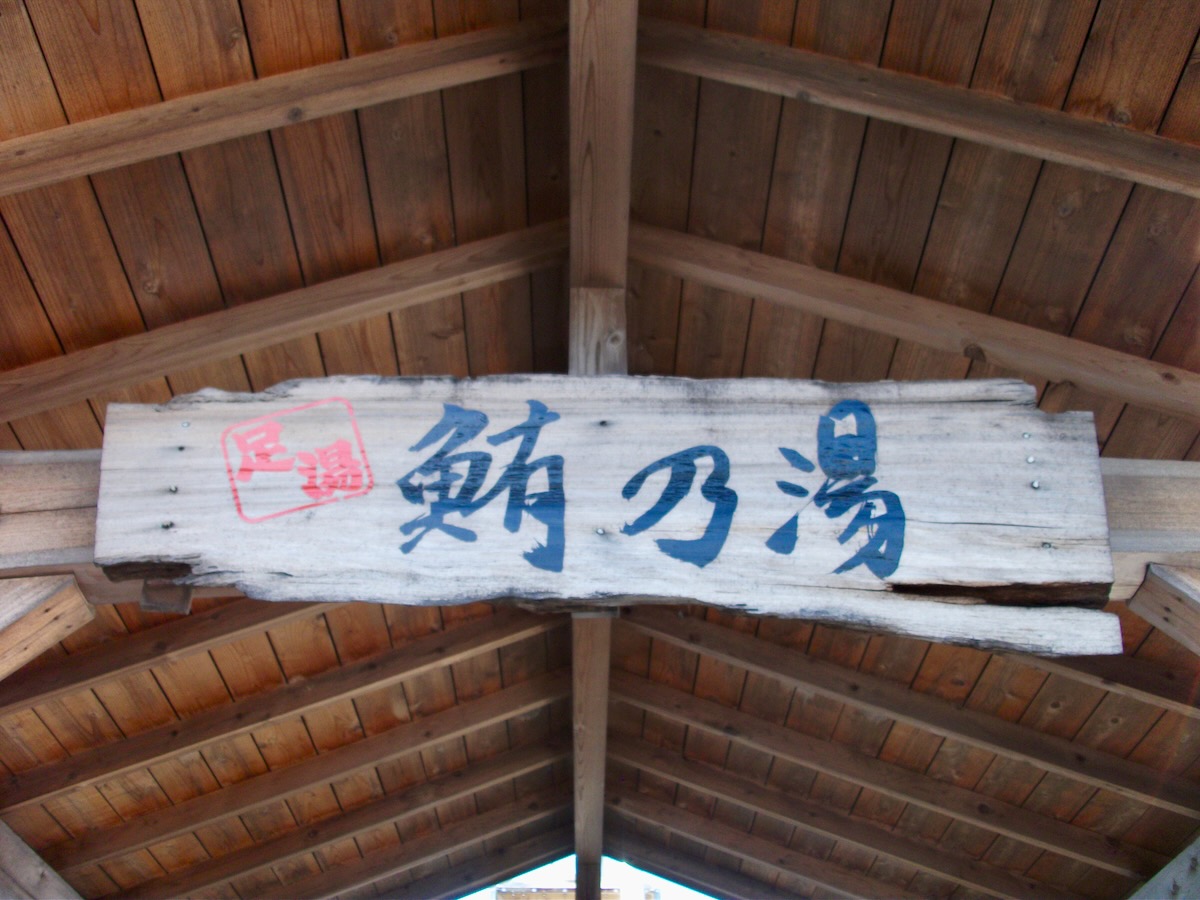 足湯
鮪乃湯